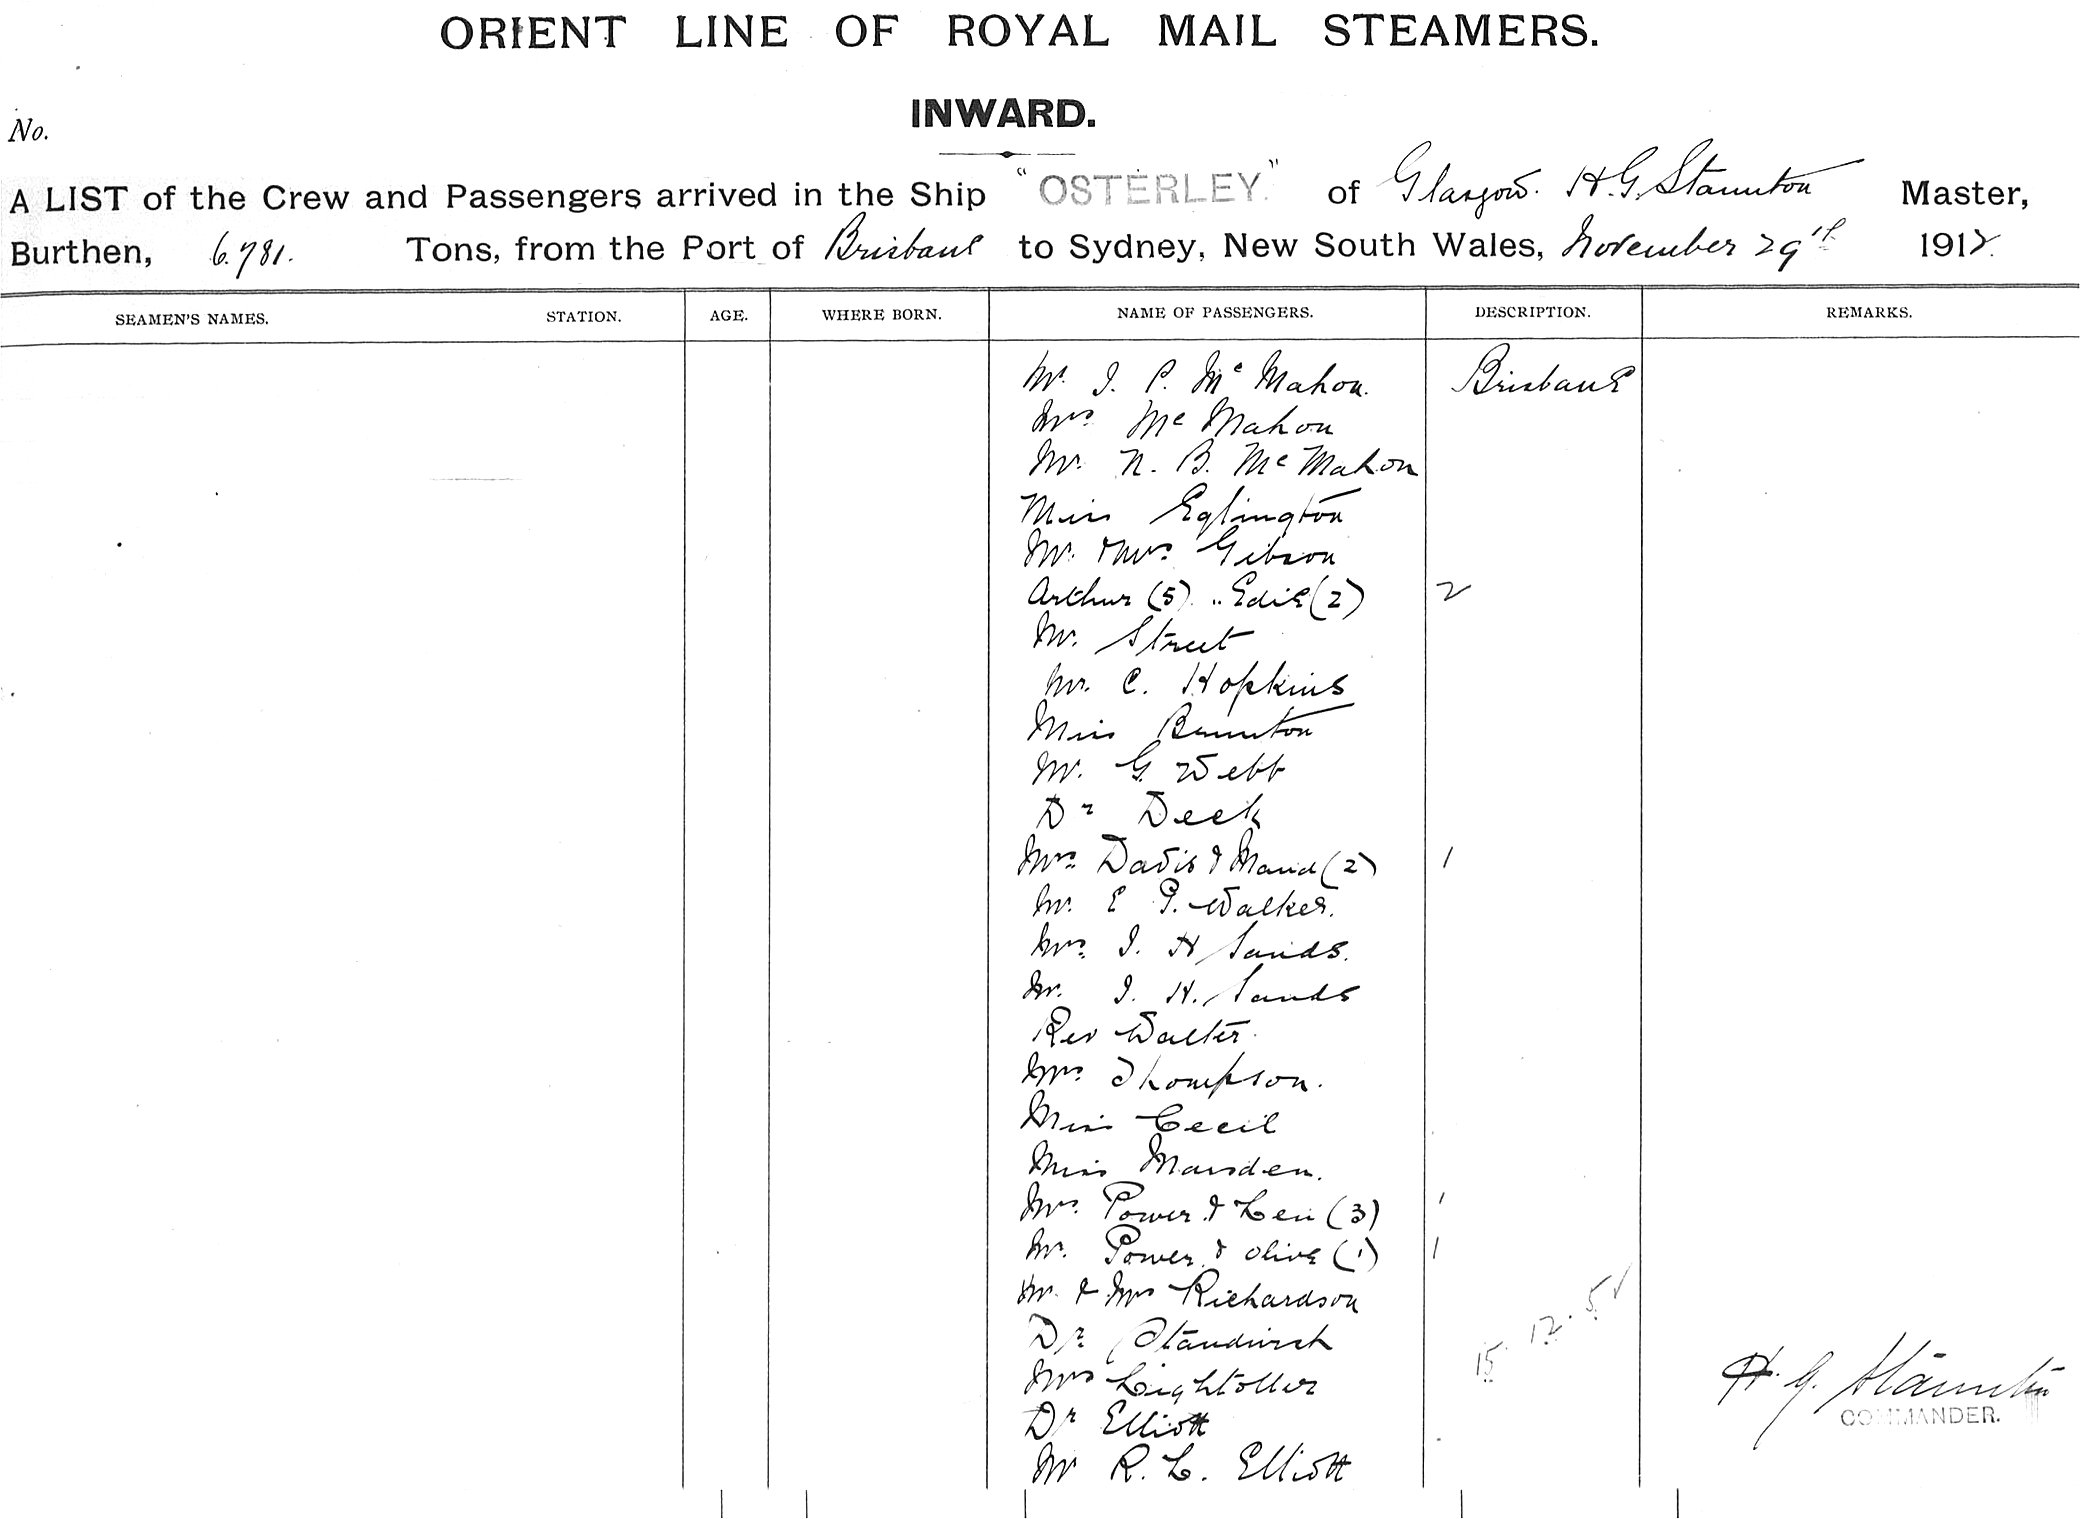 ORIENT LINE OF ROYAL MAIL STEAMERS.
INWARD.
No.
A LIST of the Crew and Passengers arrived in the Ship "OSTERLEY" of Glasgow. H. G. Staunton Master,
Burthen, 6.781. Tons, from the Port of Brisbane to Sydney, New South Wales, November 29th 1912.
SEAMEN'S NAMES. STATION. AGE. WHERE BORN. NAME OF PASSENGERS. DESCRIPTION. REMARKS.
Mr. J. P. McMahon. Brisbane
Mrs McMahon
Mr. N. B. McMahon
Miss Eglington
Mr. & Mrs. Gibson
Arthur (5) .. Edie (2) 2
Mr. Street
Mr. C. Hopkins
Miss Brunton
Mr. G. Webb
Dr Deck
Mrs. Davis & Maud (2) 1
Mr. E P. Walker.
Mrs. J. H Sands.
Mr. J. H. Sands
Rev Walter.
Mrs. Thompson.
Miss Cecil
Miss Marsden.
Mrs. Power & Len (3) 1
Mr. Power & Olive (1) 1
Mr. & Mrs Richardson
Dr
15. 12. 5
Mrs Lightoller
H. G. Staunton
COMMANDER.
Dr Elliott
Mr R. L. Elliott